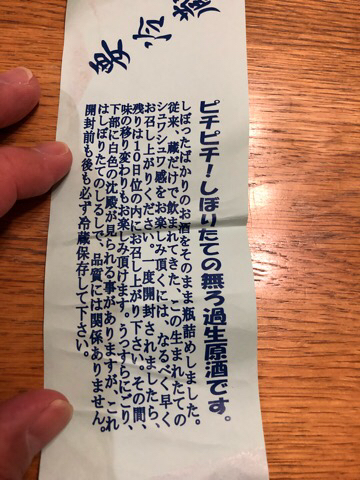 要冷蔵
ピチピチ！しぼりたての無ろ過生原酒です。
しぼったばかりのお酒をそのまま瓶詰めしました。
従来、蔵だけで飲まれてきた、この生まれたての
シュワシュワ感をお楽しみ頂くには、なるべく早く
お召し上がりください。一度開封されましたら、
残りは10日位の内にお召し上り下さい。その間、
味の移り変わりもお楽しみ頂けます。うっすらにごり、
下部に白色の沈殿が見られる事がありますが、これ
はしぼりたてのしるしで、品質には関係ありません。
開封前も後も必ず冷蔵保存して下さい。